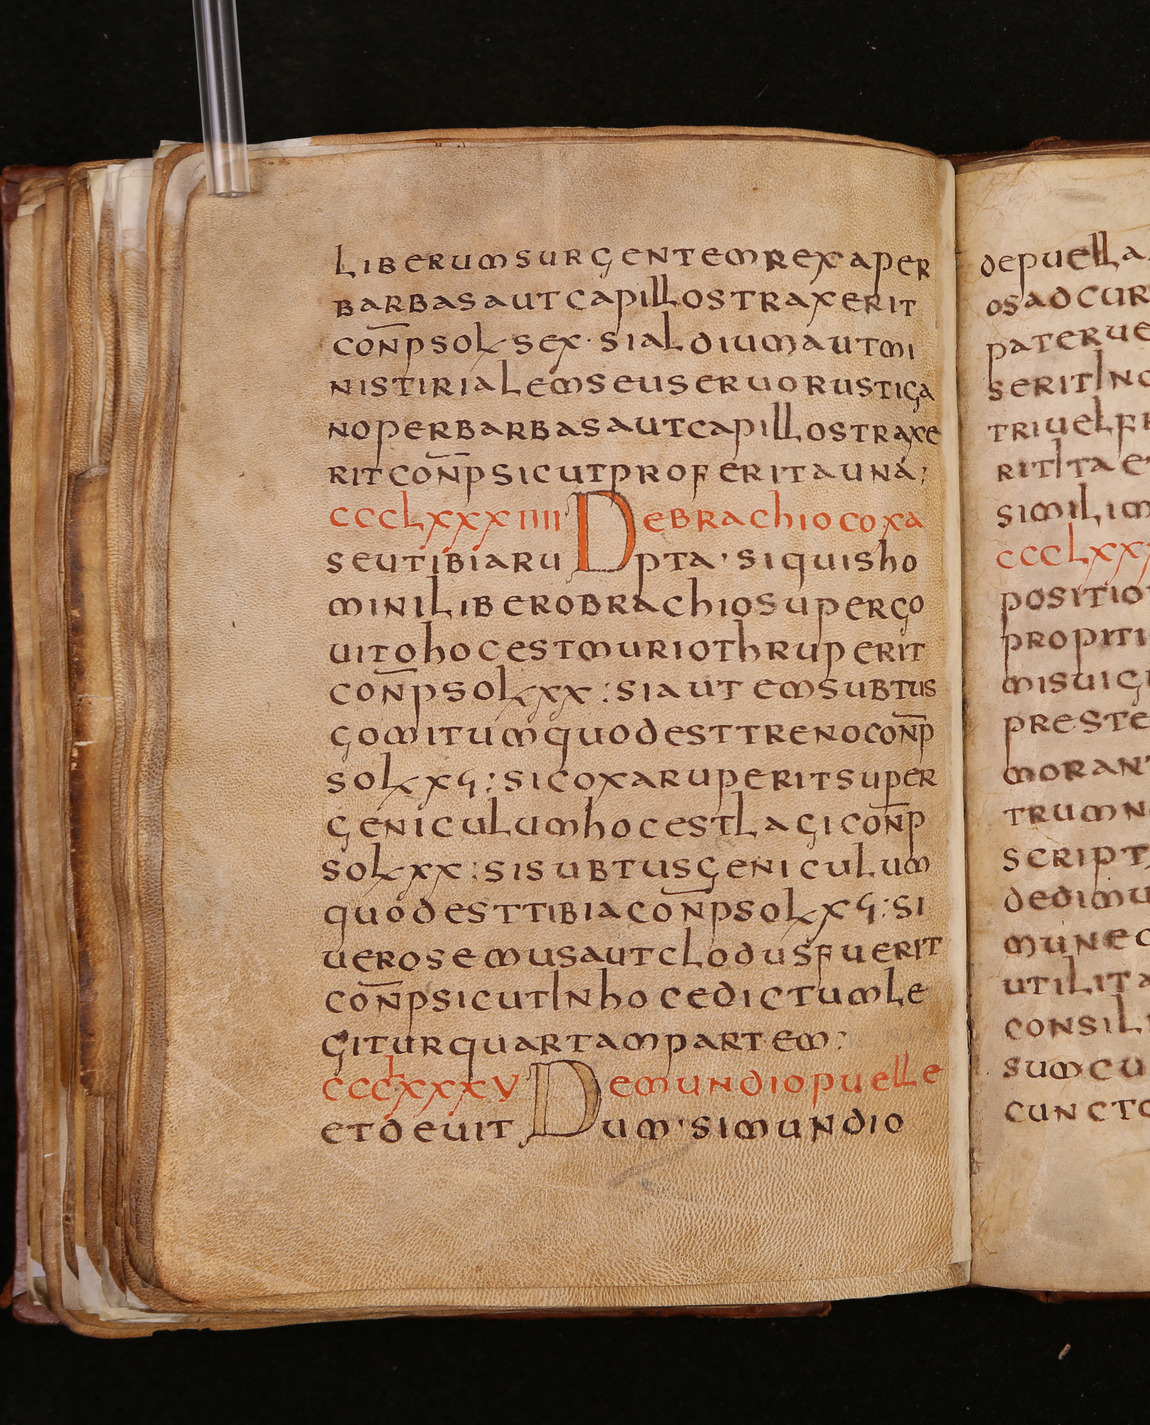 liberum surgentem rex a per
barbas aut capillos traxerit
con̄p sol sex · si aldium aut mi
nistirialem seu seruo rustiga
no per barbas aut capillos traxe
rit con̄p sicut pro ferita una ;
ccclxxxiiii De brachio coxa
seu tibia ru pta · si quis ho
mini libero brachio super go
uito hoc est murioth ruperit
con̄p sol xx : si autem subtus
gomitum quod est treno con̄p
sol xϛ : si coxa ruperit super
geniculum hoc est lagi con̄p
sol xx : si subtus geniculum
quod est tibia con̄p sol xϛ : si
uero semus aut clodus fuerit
con̄p sicut in hoc edictum le
gitur quartam partem :
ccclxxxv De mundio puelle
et deuit um · si mundio
depuella
os ad cur
pater ue
serit Inc
tri uel fr
rit Ita e
simili m
ccclxx
positio
propiti
mis uigi
preste
morant
trum n
script
dedimu
mune c
utilita
consili
sum cu
cuncto